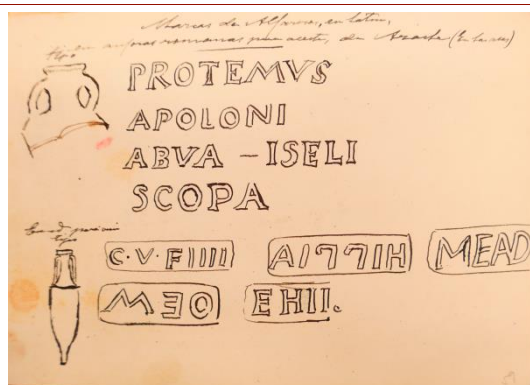 Marcas de Alfareros, en latin,
tipo anforas romanas para aceite, de Azaila (En la asa)
PROTEMVS
APOLONI
ABVA - ISELI
SCOPA
tipo
C·V·FIIII AI77IH MEAD
WEO EHII.